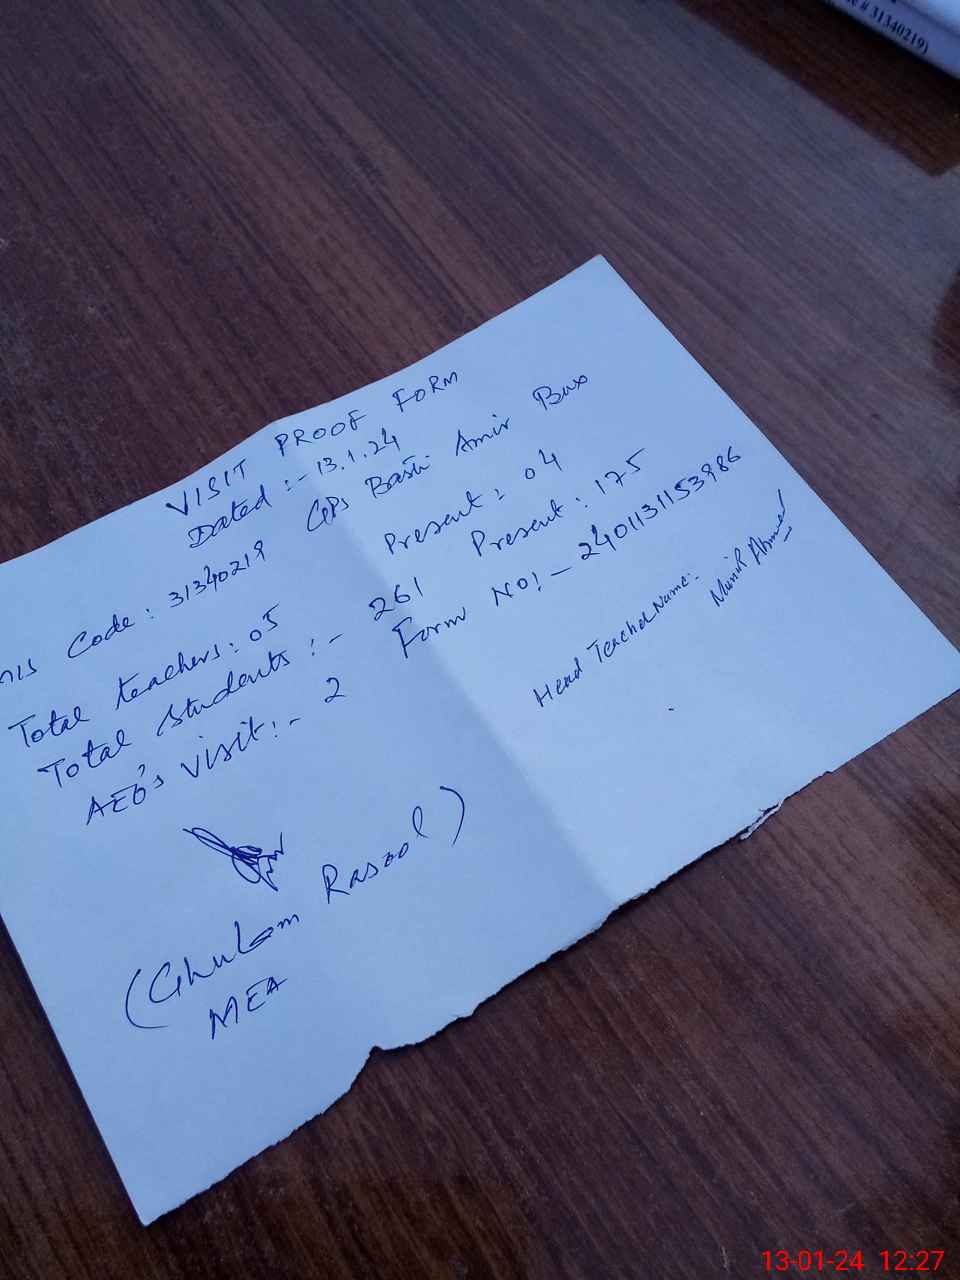 e # 31340219)
VISIT PROOF FORM
Dated :- 13.1.24
MIS Code : 31340219 GPS Basti Amir Bux
Total teachers : 05 Present : 04
Total Students :- 261 Present : 175
AEO's visit :- 2 Form No :- 2401131153986
Head Teacher Name:
Munir Ahmed
(Ghulam Rasool)
MEA
13-01-24 12:27